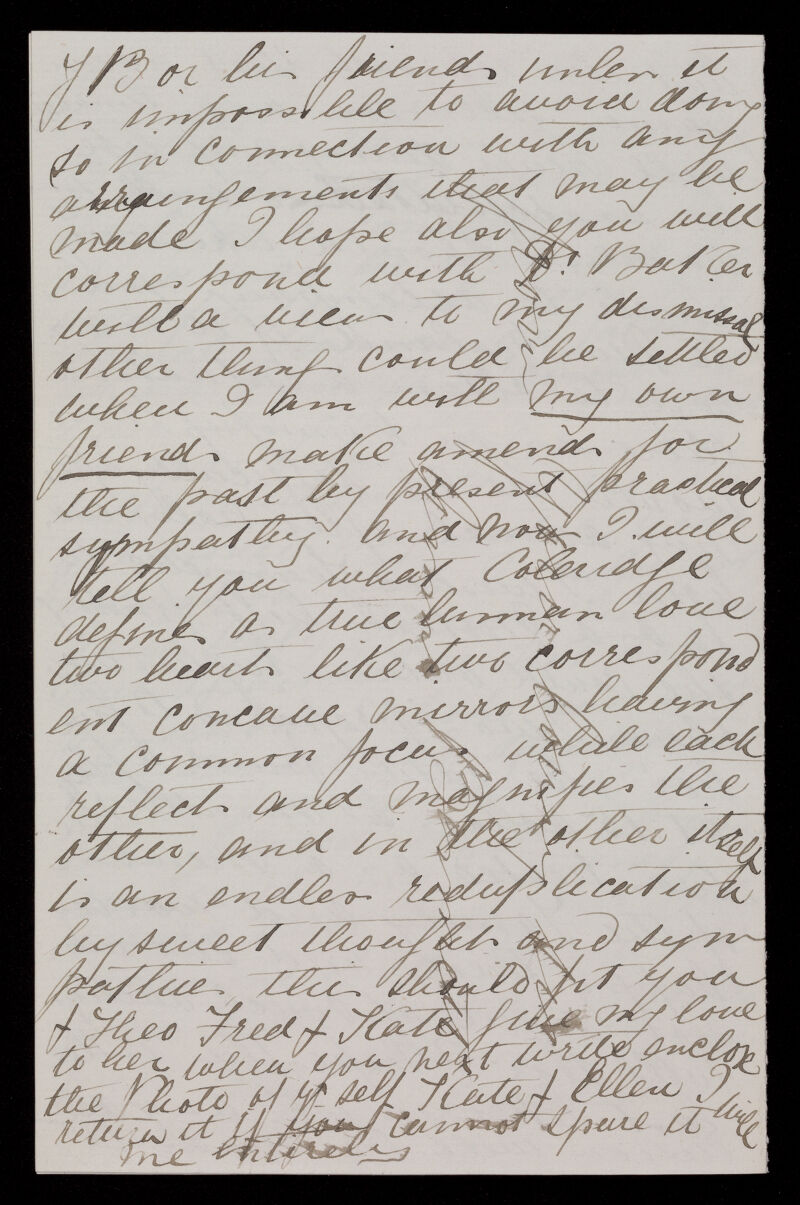 J B or his friends unless it
is impossible to avoid doing
so in connection with any
arrangements that may be
made I hope also you will
correspond with Dr Baker
with a view to my dismissal
other thing could be settled
when I am with my own
friends make amends for
the past by present practical
sympathy. And now I will
tell you what Coleridge
defines as true human love
two hearts like two correspond
ent concave mirrors having
a common focus while each
reflects and magnifies the
other, and in the other itself
is an endless reduplication
by sweet thoughts and sym
pathies this should fit you
& Theo Fred & Kate give my love
to her when you next write enclose
the Photo of yr self Kate & Ellen I will
return it if you cannot spare it
me entirely